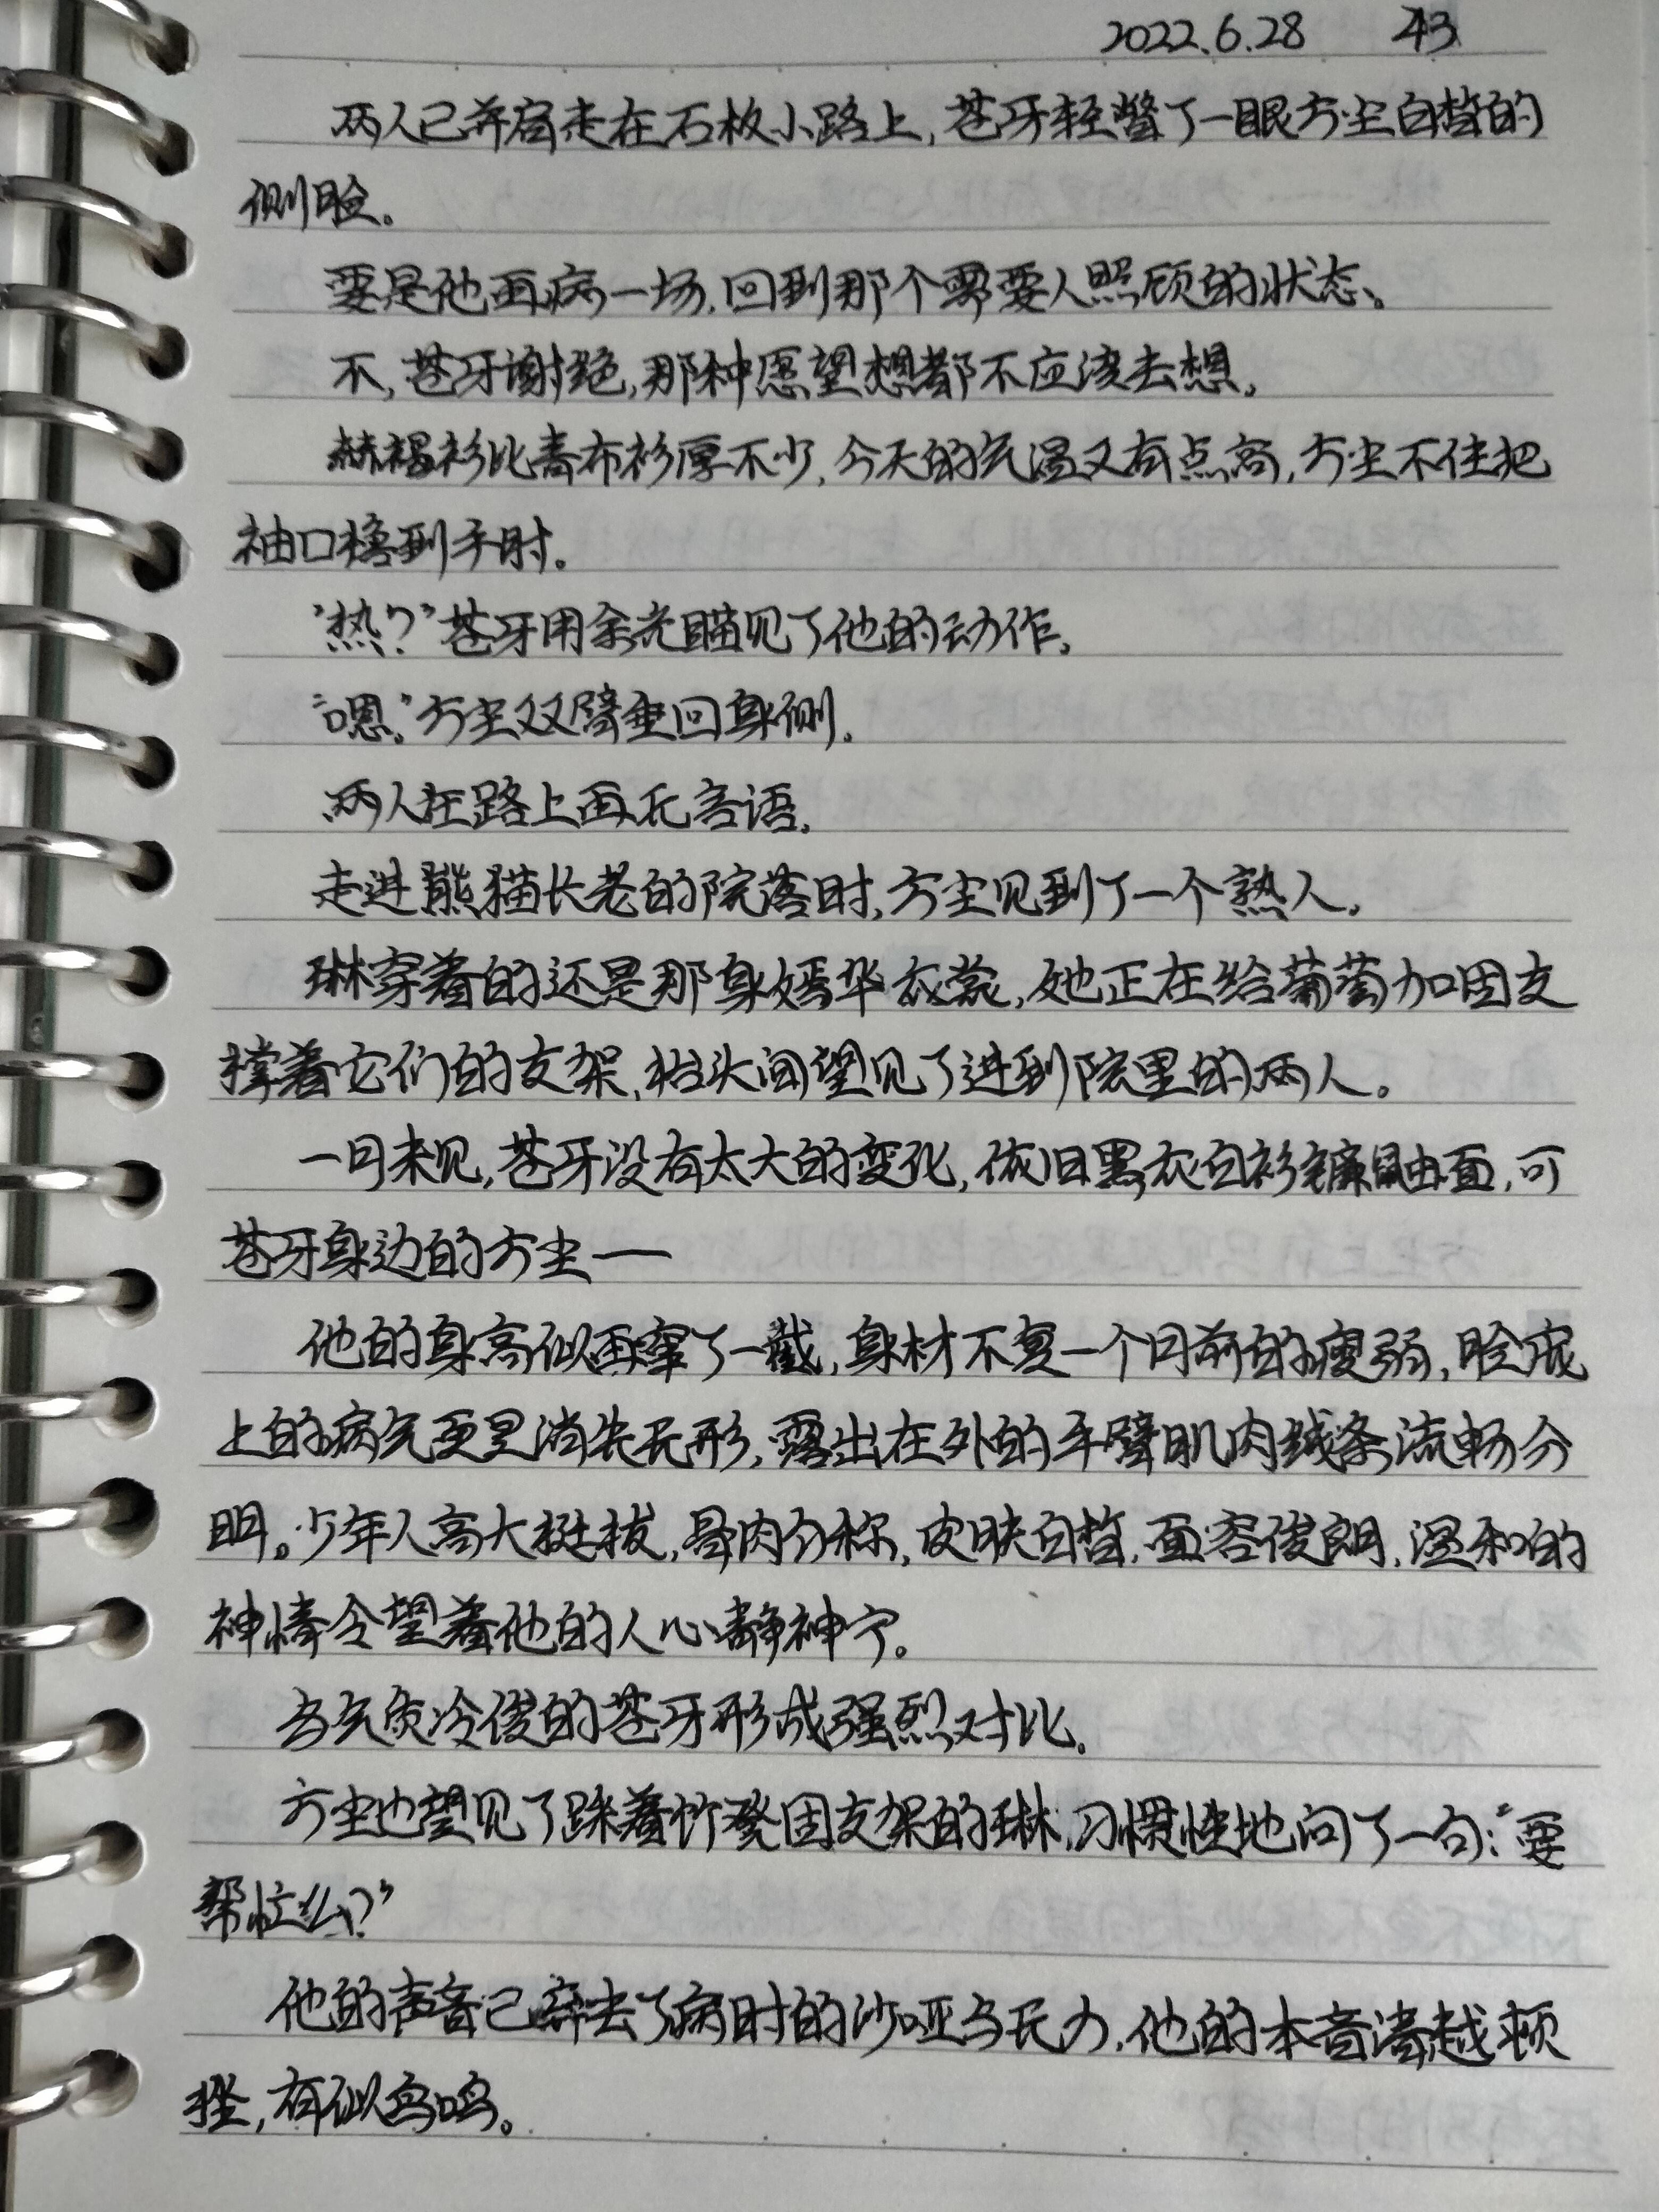 2022.6.28 43
两人已并肩走在石板小路上,苍牙轻瞥了一眼方尘白皙的
侧脸。
要是他再病一场,回到那个需要人照顾的状态、
不,苍牙谢绝,那种愿望想都不应该去想。
赫褐衫比青布衫厚不少,今天的气温又有点高,方尘不住把
袖口撸到手肘。
“热?”苍牙用余光瞄见了他的动作。
“嗯。”方尘双臂垂回身侧。
两人在路上再无言语。
走进熊猫长老的院落时,方尘见到了一个熟人。
琳穿着的还是那身嫣华衣裳,她正在给葡萄加固支
撑着它们的支架,抬头间望见了进到院里的两人。
一月未见,苍牙没有太大的变化,依旧黑衣白衫镰鼬面,可
苍牙身边的方尘——
他的身高似再窜了一截,身材不复一个月前的瘦弱,脸庞
上的病气更是消失无形,露出在外的手臂肌肉线条流畅分
明。少年人高大挺拔,骨肉匀称,皮肤白皙,面容俊朗,温和的
神情令望着他的人心静神宁。
与气质冷俊的苍牙形成强烈对比。
方尘也望见了踩着竹凳固支架的琳,习惯性地问了一句:“要
帮忙么?”
他的声音已弃去了病时的沙哑与无力,他的本音清越顿
挫,有似鸟鸣。